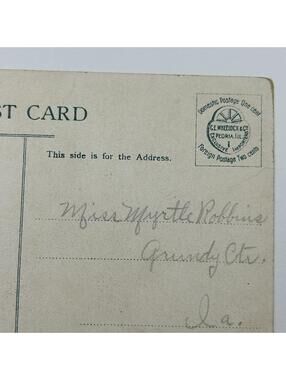 ST CARD
Domestic Postage One cent
C.E. WHEELOCK & CO.
PEORIA, ILL.
EXCLUSIVE IMPORTERS
Foreign Postage Two cents
This side is for the Address.
Miss Myrtle Robbins
Grundy Ctr.
Ia.